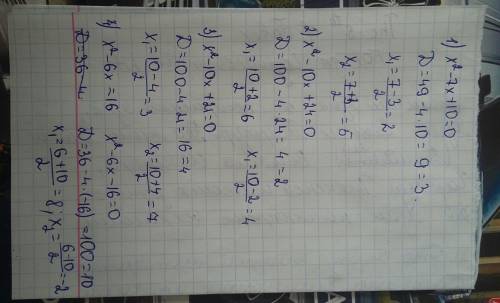 1) x²-7x+10=0
D=49-4·10=9=3.
x₁=7-3/2=2
x₂=7+3/2=5
2) x²-10x+24=0
D=100-4·24=4=2
x₁=10+2/2=6 x₁=10-2/2=4
3) x²-10x+21=0
D=100-4·21=16=4
x₁=10-4/2=3 x₂=10+4/2=7
4) x²-6x=16 x²-6x-16=0
D=36-4 D=36-4·(-16)=100=10
x₁=6+10/2=8; x₂=6-10/2=-2